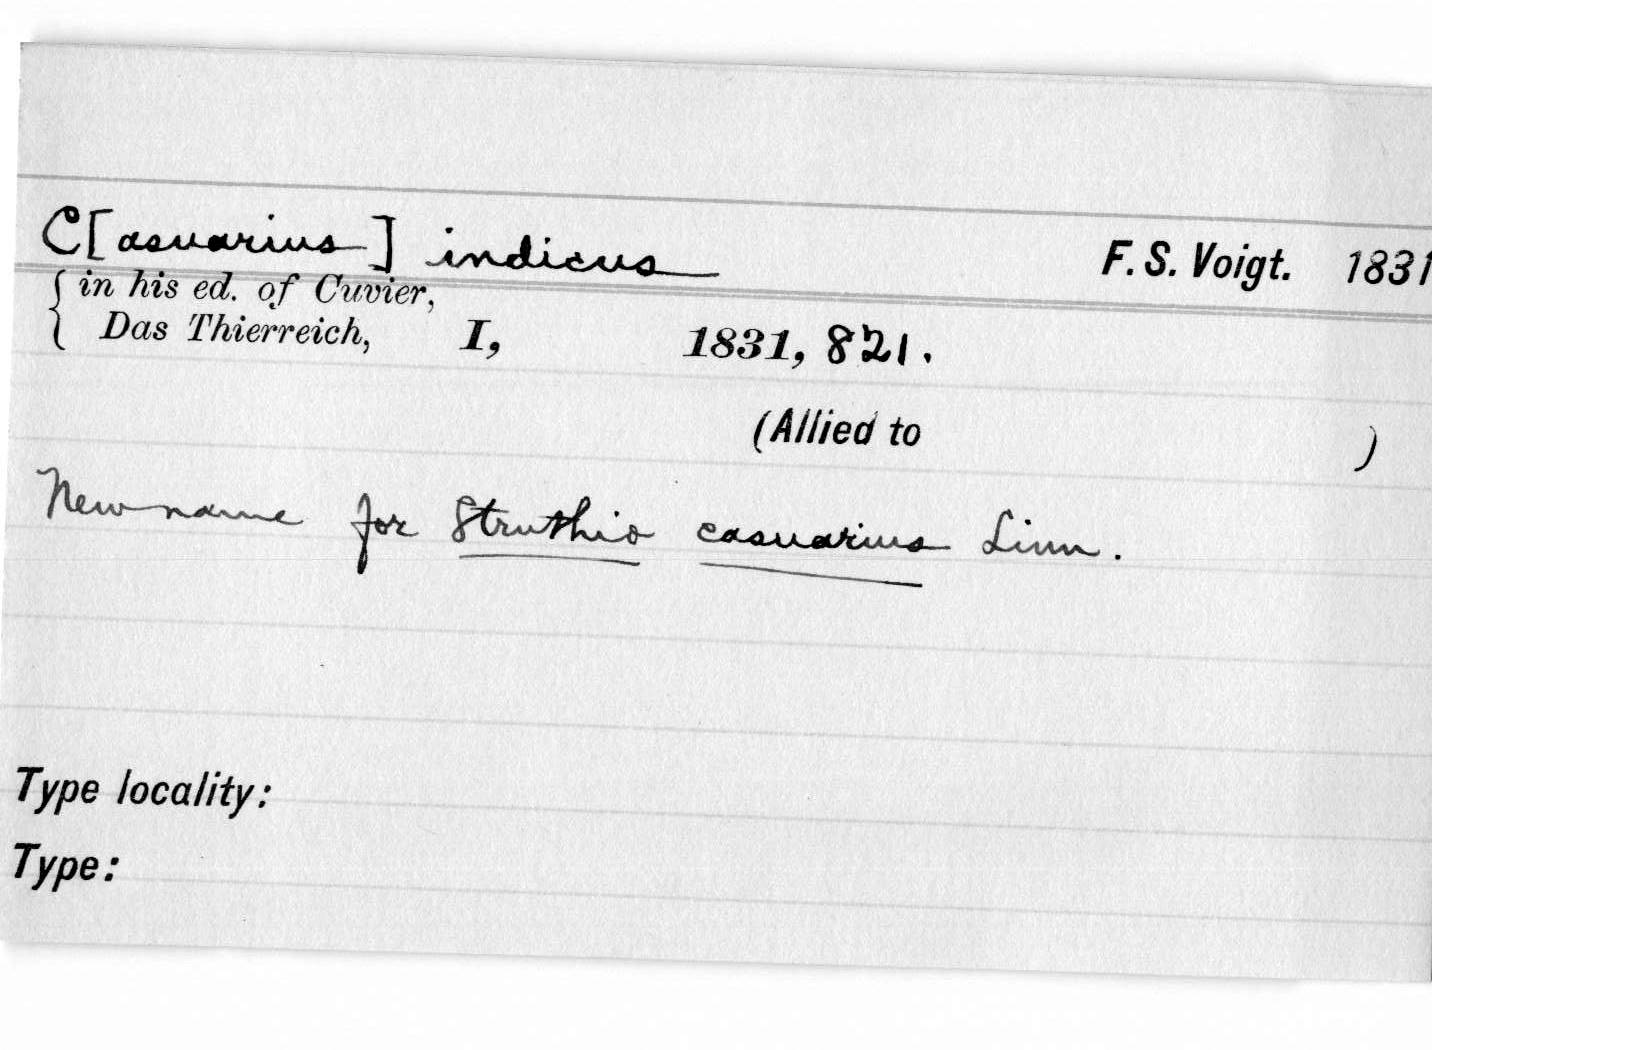 C[asuarius] indicus F. S. Voigt. 1831
{ in his ed. of Cuvier,
Das Thierreich, I, 1831, 821.
(Allied to )
New name for Struthio casuarius Linn.
Type locality:
Type: